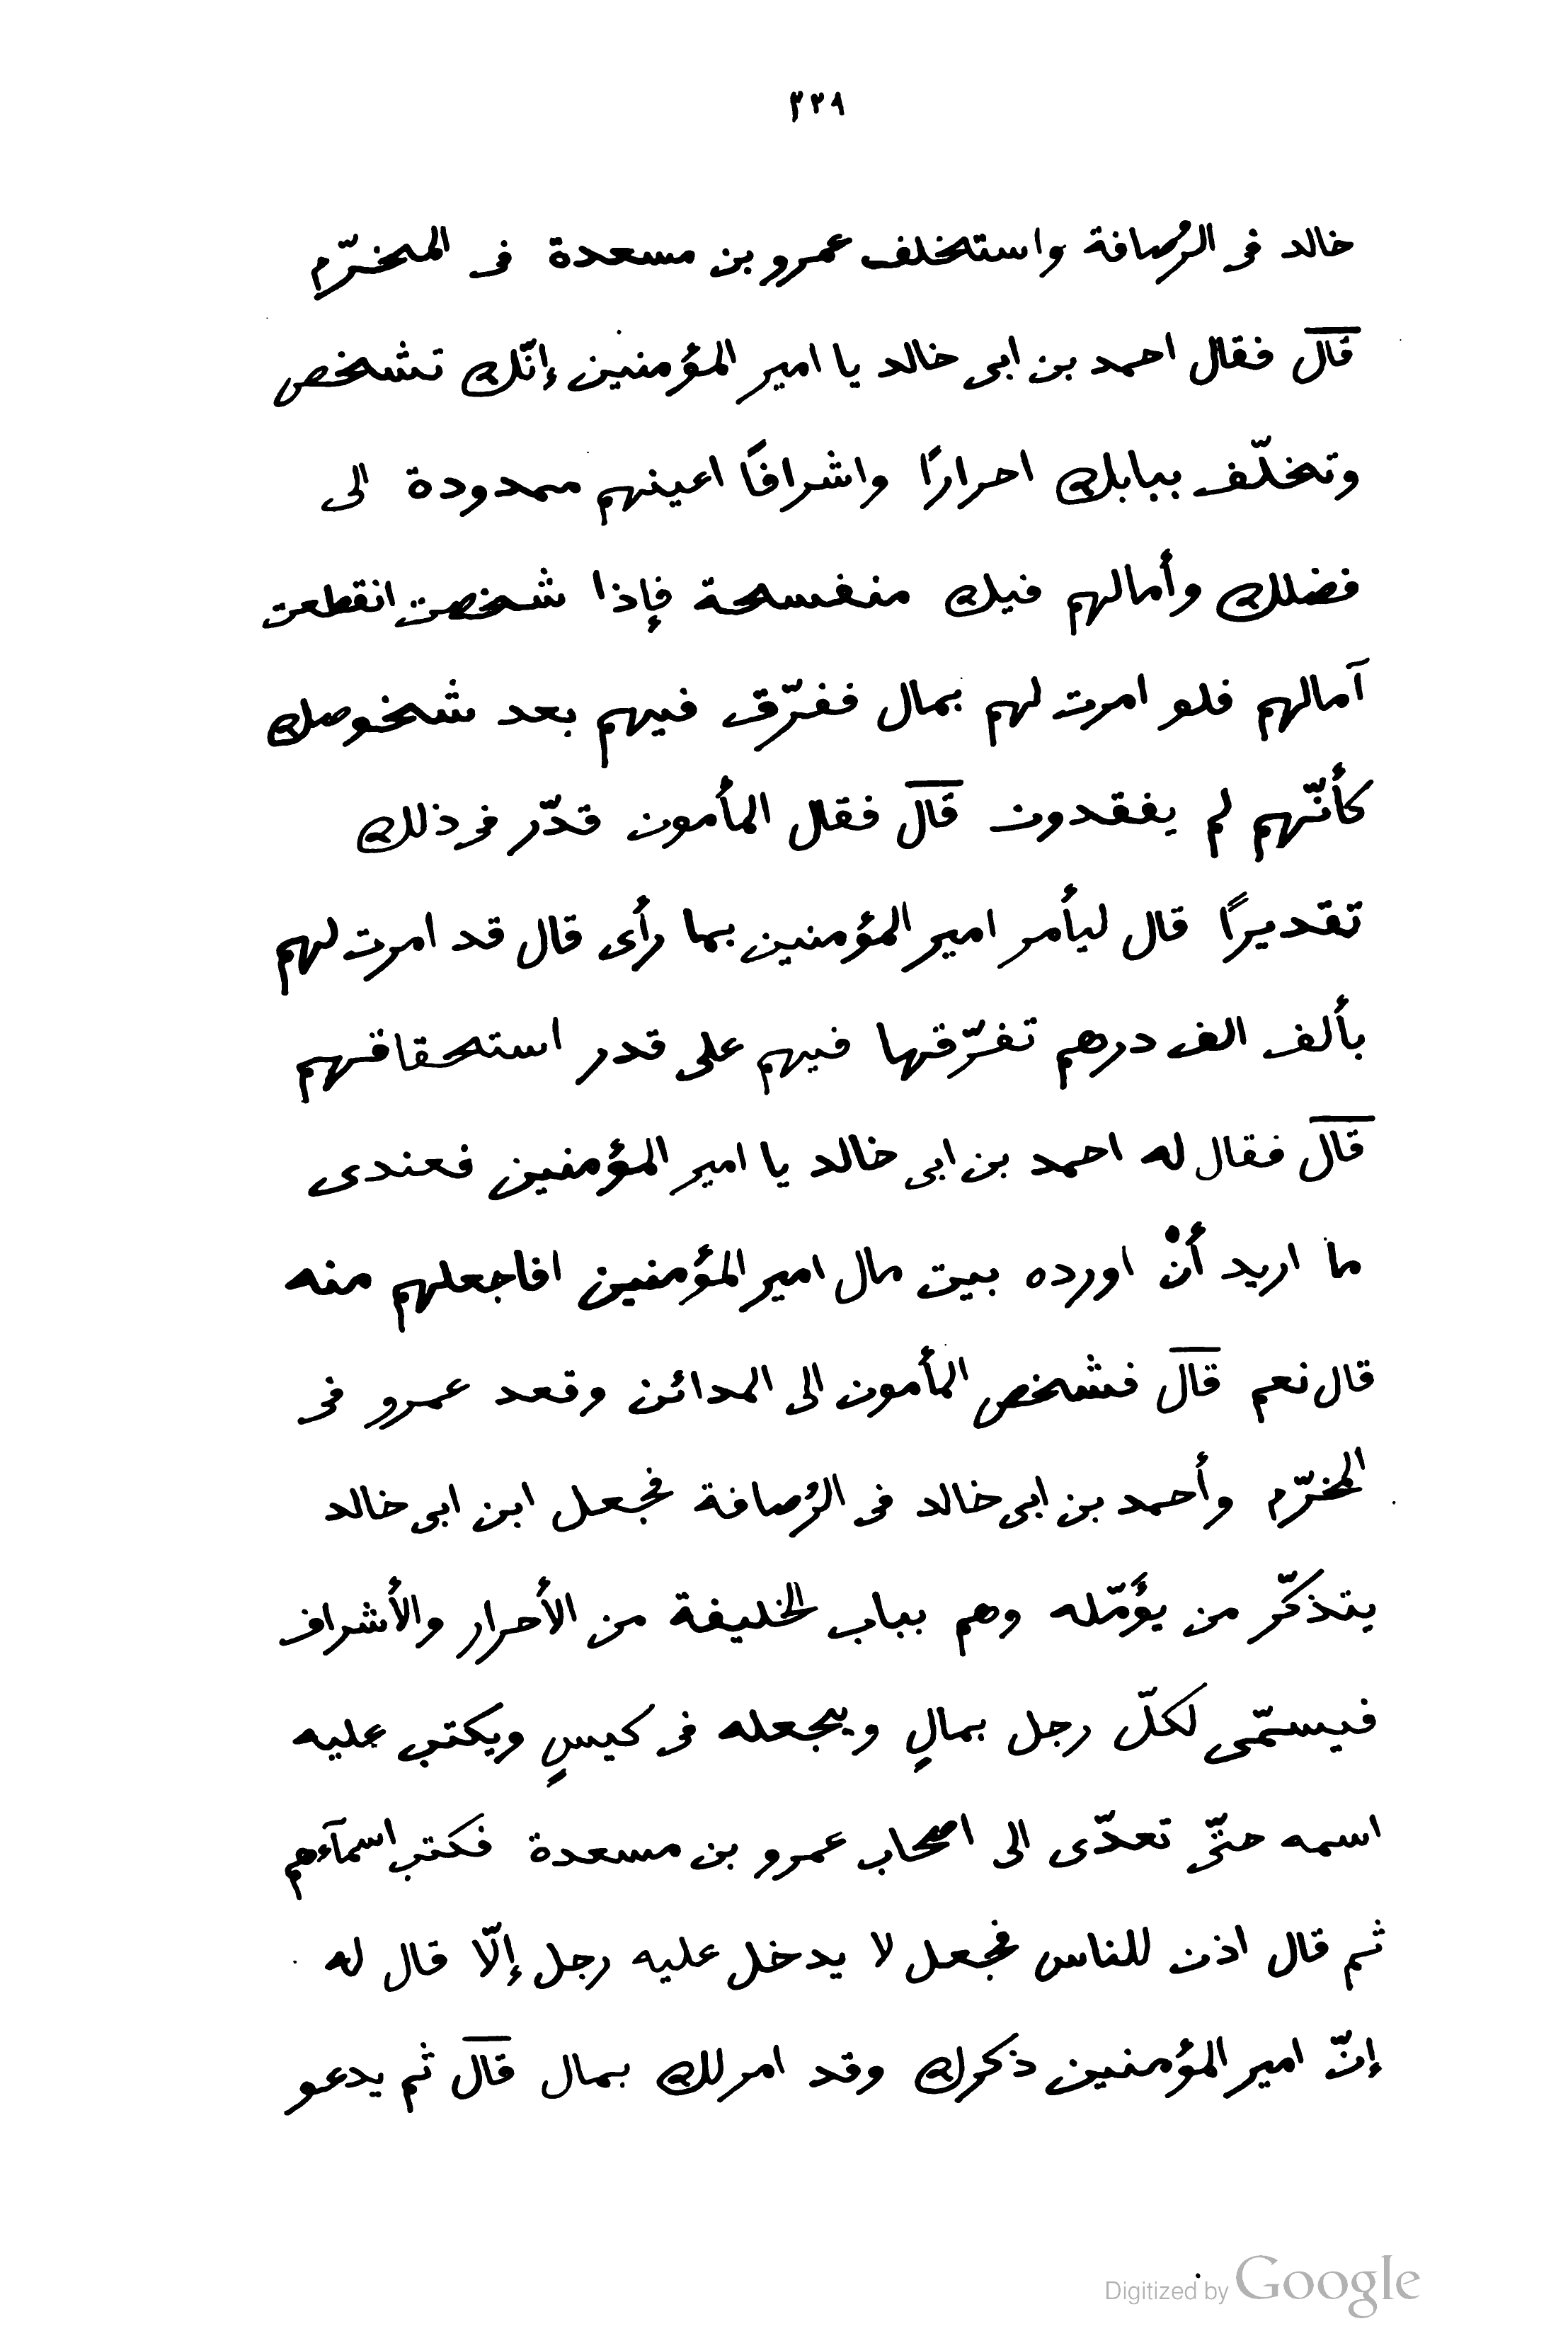 ٢٢٩
خالد فى الرُصافة واستخلف عمرو بن مسعدة فى المخرّم
قال فقال احمد بن ابى خالد يا امير المؤمنين إنّك تشخص
وتخلّف ببابك احرارًا واشرافًا اعينهم ممدودة الى
فضلك وأمالهم فيك منفسحة فإذا شخصت انقطعت
آمالهم فلو امرت لهم بمال ففرّق فيهم بعد شخوصك
كأنّهم لم يفقدون قال فقال المأمون قدّر فى ذلك
تقديرًا قال ليأمر امير المؤمنين بما رأى قال قد امرت لهم
بألف الف درهم تفرّقها فيهم على قدر استحقاقهم
قال فقال له احمد بن ابى خالد يا امير المؤمنين فعندى
ما اريد أنْ اورده بيت مال امير المؤمنين افاجعلهم منه
قال نعم قال فشخص المأمون الى المدائن وقعد عمرو فى
المخرّم وأحمد بن ابى خالد فى الرُصافة فجعل ابن ابى خالد
يتذكّر من يؤَمّله وهم بباب الخليفة من الأحرار والأشراف
فيسمّى لكلّ رجل بمالٍ ويجعله فى كيسٍ ويكتب عليه
اسمه حتّى تعدّى الى اصحاب عمرو بن مسعدة فكتب اسمآءهم
ثم قال اذن للناس فجعل لا يدخل عليه رجل إلّا قال له
إنّ امير المؤمنين ذكرك وقد امر لك بمال قال ثم يدعو
Digitized by Google